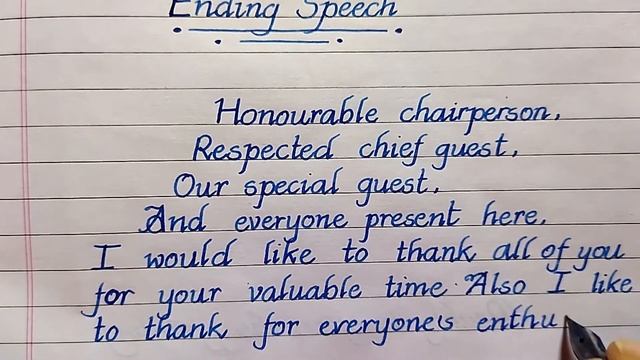 Ending Speech
Honourable chairperson,
Respected chief guest,
Our special guest,
And everyone present here,
I would like to thank all of you
for your valuable time. Also I like
to thank for everyone's enthu